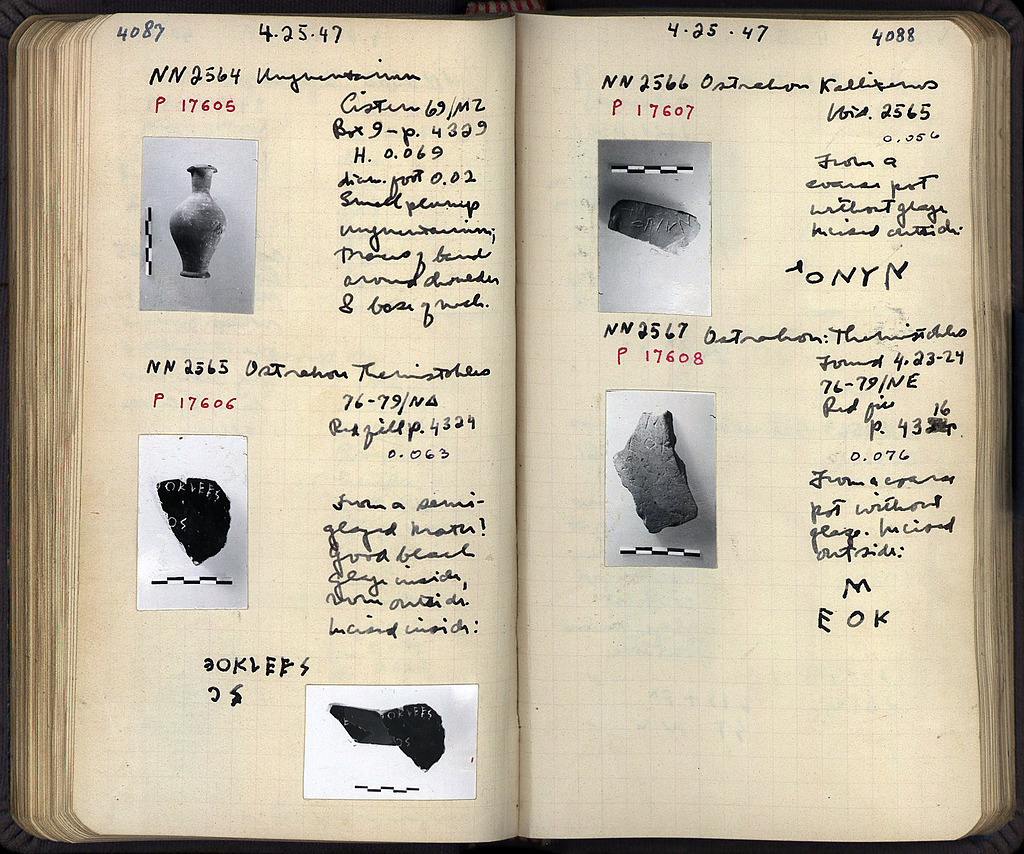 4087
4.25.47
NN 2564 Unguentarium
P 17605
Cistern 69/MZ
Box 9 - p. 4329
H. 0.069
diam. foot 0.02
Small plump
unguentarium;
traces of band
around shoulder
& base of neck.
NN 2565 Ostrakon Themistokles
P 17606
76-79/NΔ
Red fill p. 4324
0.063
From a semi-
glazed krater!
Good black
glaze inside,
worn outside.
Incised inside:
OKLEES
OS
4.25.47
4088
NN 2566 Ostrakon Kallixenos
P 17607
Ibid. 2565
0.056
From a
coarse pot
without glaze
Incised outside:
ONYN
NN 2567 Ostrakon: Themistokles
P 17608
Found 4.23-24
76-79/NE
Red fill
16
p. 43
0.076
From a coarse
pot without
glaze. Incised
outside:
M
E O K